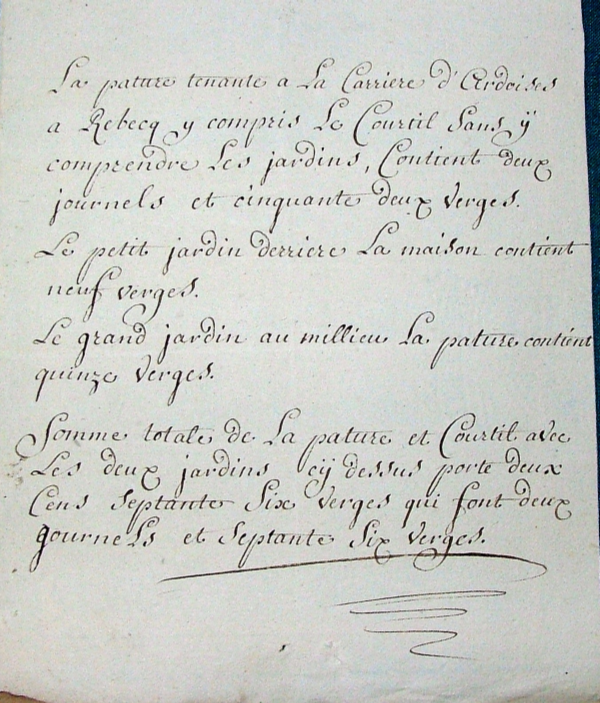 La pature tenante a La Carriere d'Ardoises
a Rebecq y compris Le Courtil Sans ÿ
comprendre Les jardins, Contient deux
journels et cinquante deux Verges.
Le petit jardin derriere La maison contient
neuf verges.
Le grand jardin au millieu La pature contient
quinze Verges.
Somme totale de La pature et Courtil avec
Les deux jardins cÿ dessus porte deux
Cens Septante Six Verges qui font deux
journels et Septante Six Verges.